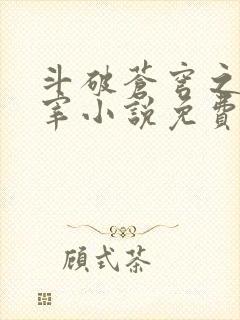 斗破蒼穹之
宰小說免費
顧式茶